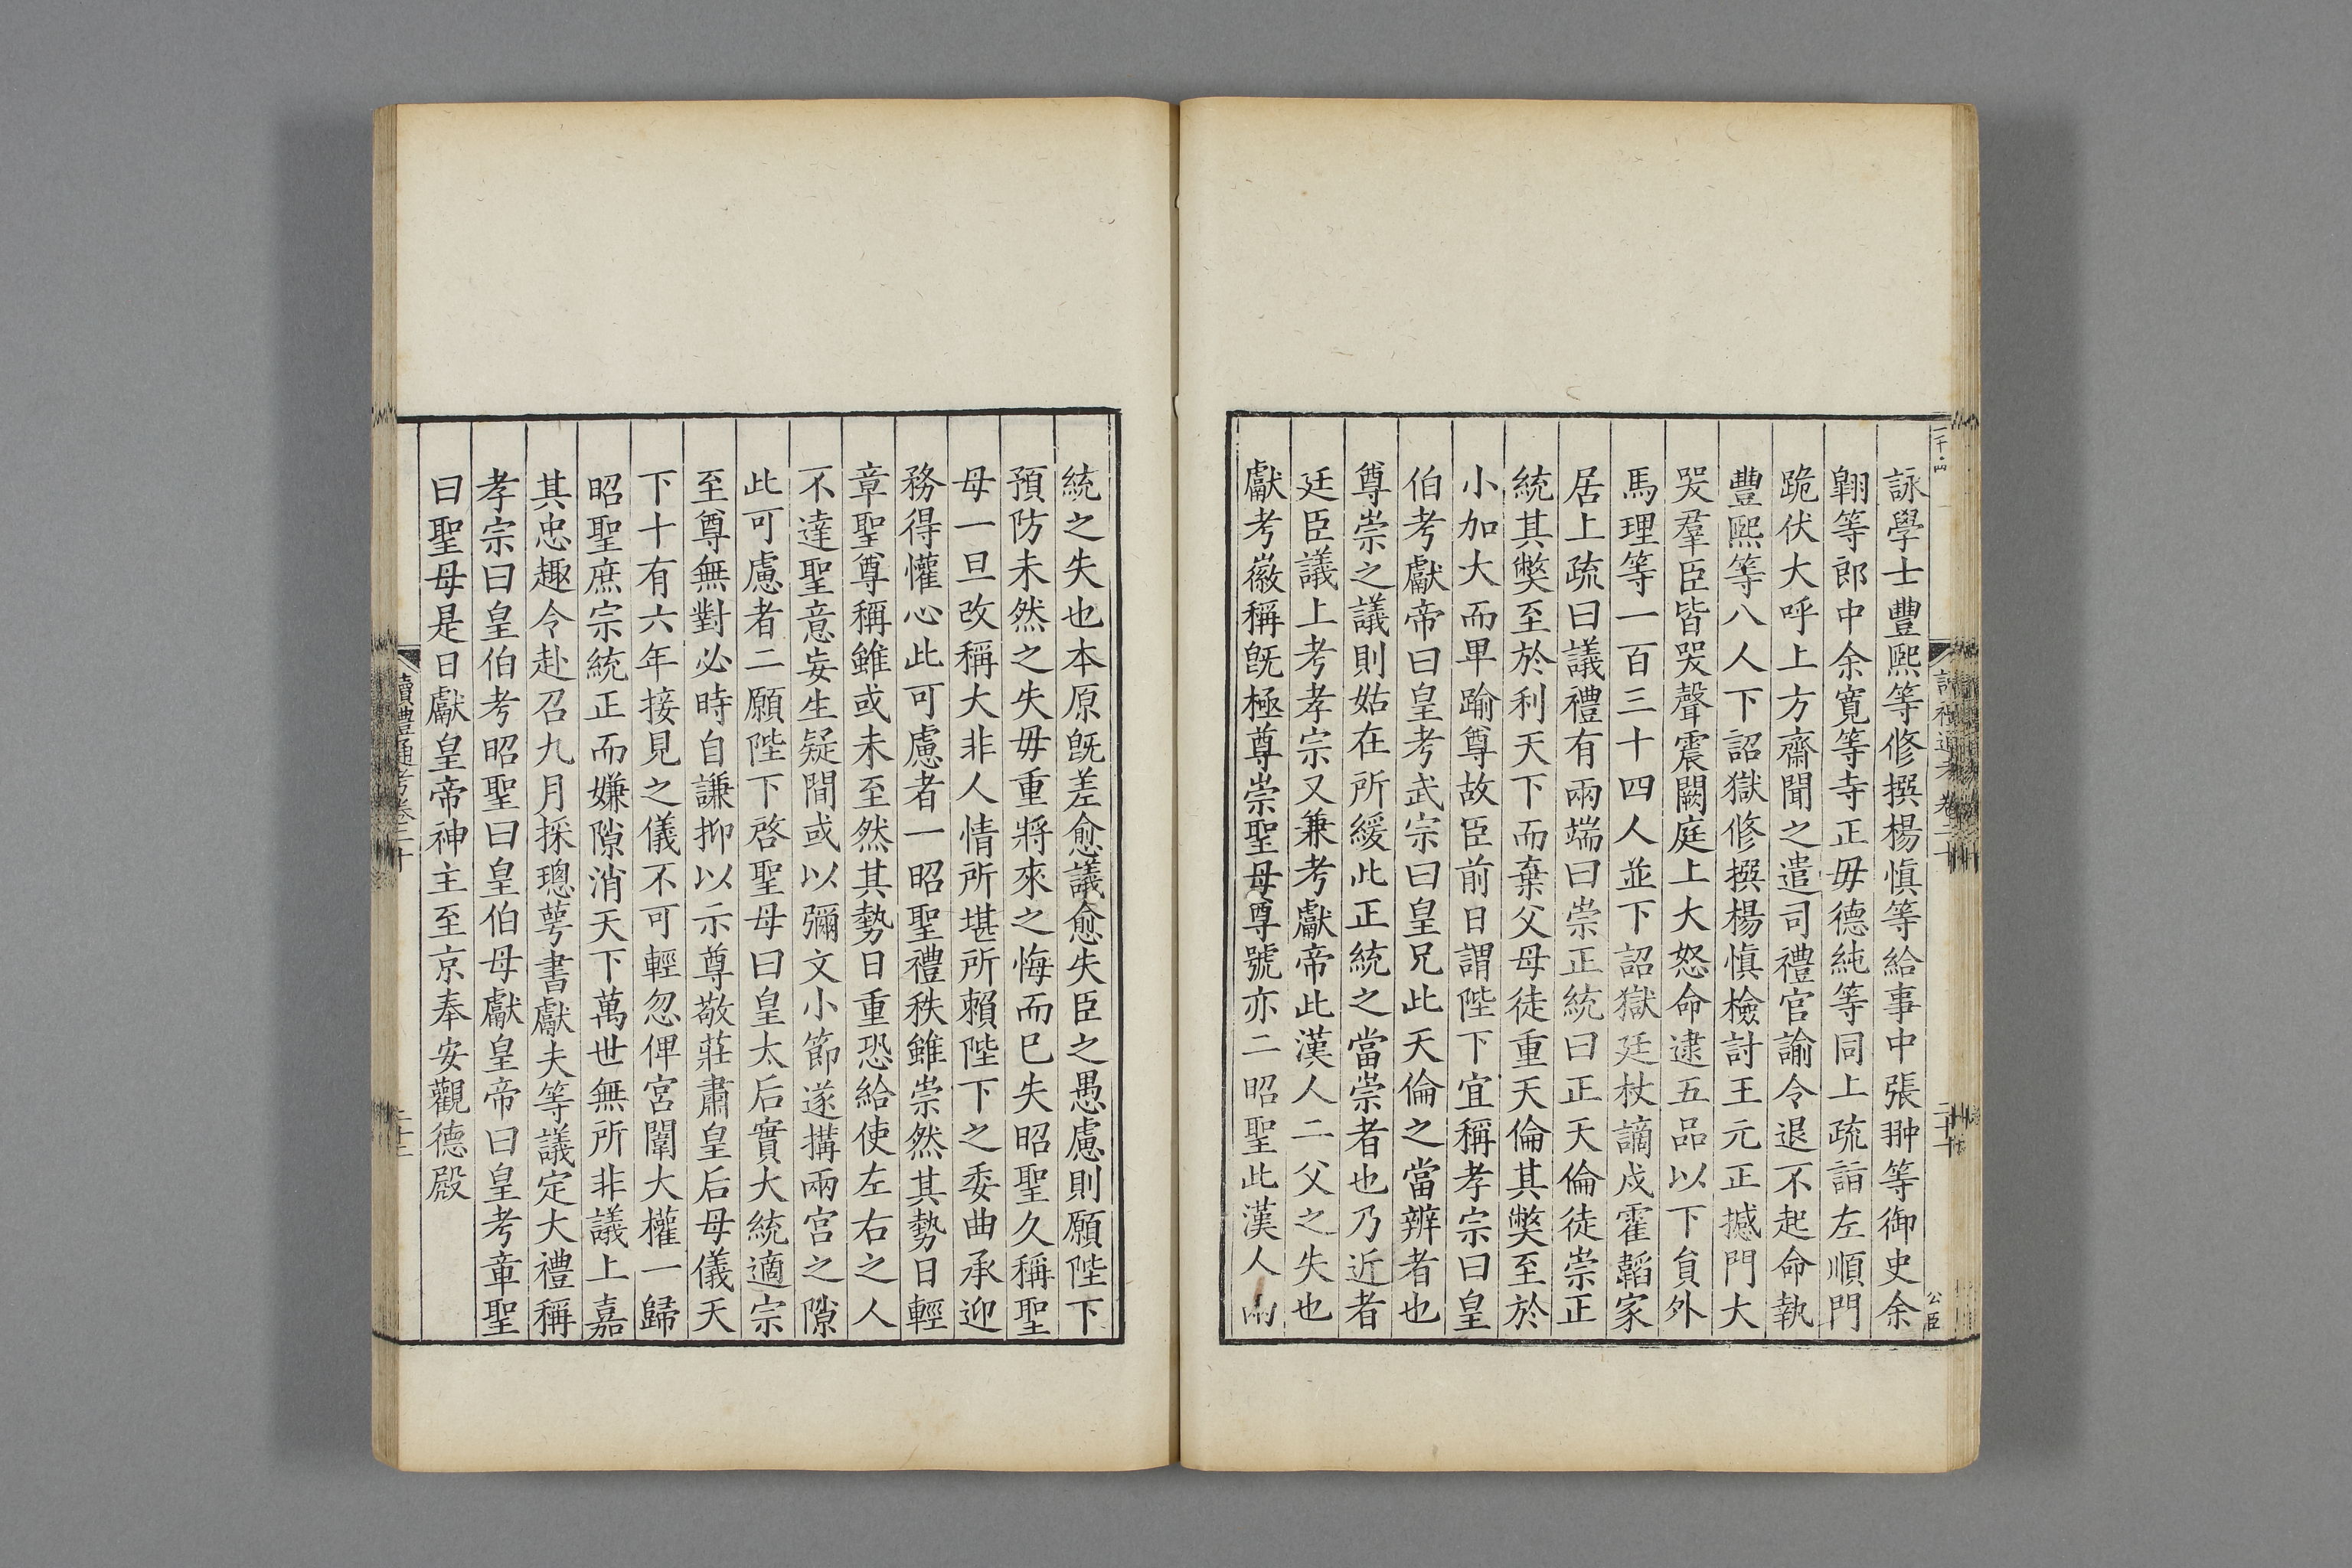 詠學士豐熙等修撰楊慎等給事中張翀等御史余
翱等郎中余寬等寺正毋德純等同上疏詣左順門
跪伏大呼上方齋聞之遣司禮官諭令退不起命執
豐熙等八人下詔獄修撰楊慎檢討王元正撼門大
哭羣臣皆哭聲震闕庭上大怒命逮五品以下貟外
馬理等一百三十四人並下詔獄廷杖謫戍霍韜家
居上疏曰議禮有兩端曰崇正統曰正天倫徒崇正
統其獘至於利天下而棄父母徒重天倫其獘至於
小加大而卑踰尊故臣前日謂陛下宜稱孝宗曰皇
伯考獻帝曰皇考武宗曰皇兄此天倫之當辨者也
尊崇之議則姑在所緩此正統之當崇者也乃近者
廷臣議上考孝宗又兼考獻帝此漢人二父之失也
獻考徽稱旣極尊崇聖母尊號亦二昭聖此漢人兩
統之失也本原旣差愈議愈失臣之愚慮則願陛下
預防未然之失毋重將來之悔而已失昭聖久稱聖
母一旦改稱大非人情所堪所賴陛下之委曲承迎
務得懽心此可慮者一昭聖禮秩雖崇然其勢日輕
章聖尊稱雖或未至然其勢日重恐給使左右之人
不達聖意妄生疑間或以彌文小節遂搆兩宮之隙
此可慮者二願陛下啓聖母曰皇太后實大統適宗
至尊無對必時自謙抑以示尊敬莊肅皇后母儀天
下十有六年接見之儀不可輕忽俾宮闈大權一歸
昭聖庶宗統正而嫌隙消天下萬世無所非議上嘉
其忠趣令赴召九月採璁萼書獻夫等議定大禮稱
孝宗曰皇伯考昭聖曰皇伯母獻皇帝曰皇考章聖
曰聖母是日獻皇帝神主至京奉安觀德殿
讀禮通考卷二十
公臣